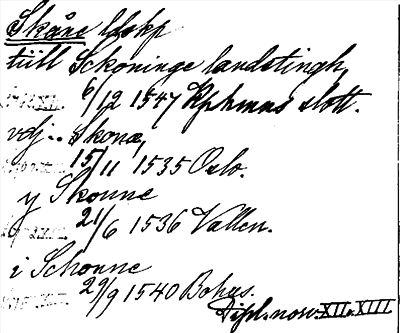 Skåne ldskp
tiill Sckoninge landstingh,
6/12 1547 Kphmns slott.
vdj .. Skonæ,
15/11 1535 Oslo.
y Skonne
21/6 1536 Vallen.
i Schonne
29/9 1540 Bohus.
Dipl. norv. XII o. XIII